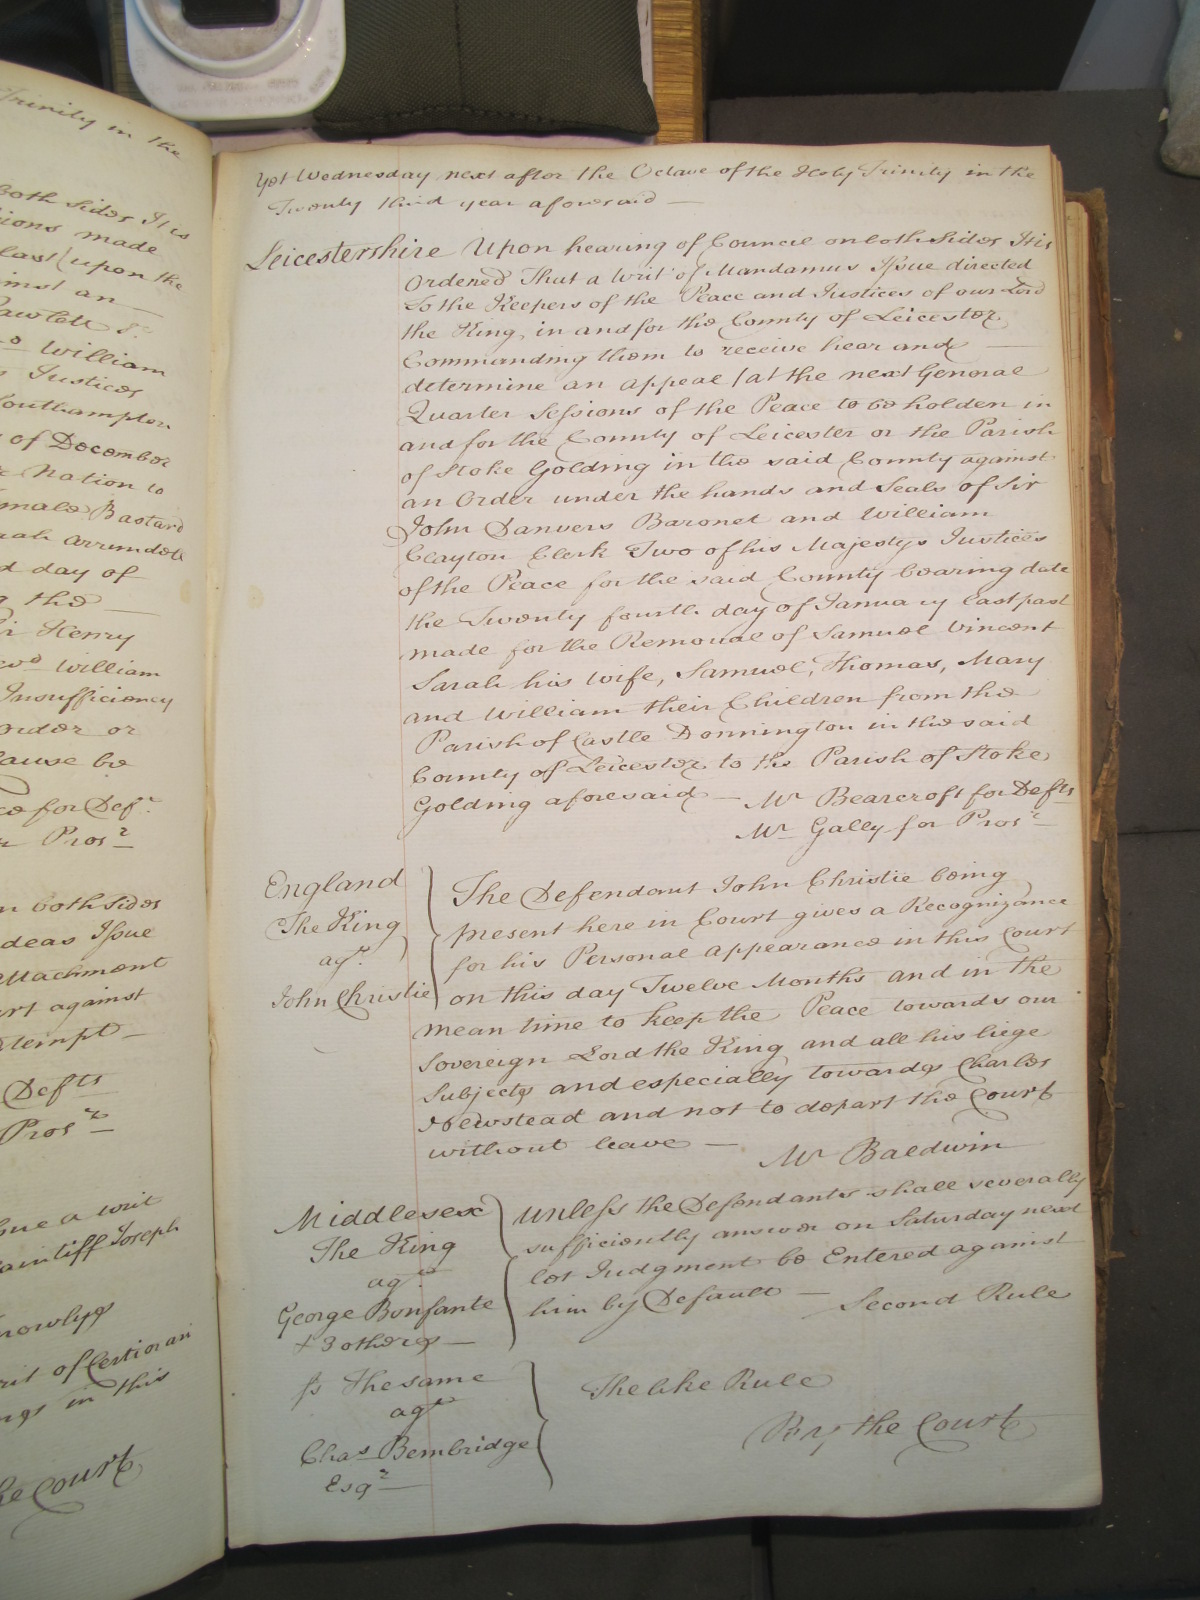 Trinity in the
both sides It is
made
last / upon the
an
William
Justices
Southampton
of December
Nation to
Bastard
Arrundell
day of
the
Henry
William
Insufficiency
Order or
Cause be
for Def.ᵗ
Pros.ʳ
on both Sides
Issue
Attachment
against
Defts
Pros.ʳ
Issue a writ
Plaintiff Joseph
Knowlys
writ of Certiorari
in this
the Court
Yet Wednesday next after the Octave of the Holy Trinity in the
Twenty third year aforesaid —
Leicestershire Upon hearing of Council on both Sides It is
Ordered That a Writ of Mandamus Issue directed
To the Keepers of the Peace and Justices of our Lord
the King in and for the County of Leicester
Commanding them to receive hear and —
determine an appeal / at the next General
Quarter Sessions of the Peace to be holden in
and for the County of Leicester or the Parish
of Stoke Golding in the said County against
an Order under the hands and Seals of Sir
John Danvers Baronet and William
Clayton Clerk Two of his Majestys Justices
of the Peace for the said County bearing date
the Twenty fourth day of January last past
made for the Removal of Samuel Vincent
Sarah his Wife, Samuel, Thomas, Mary
and William their Children from the
Parish of Castle Donnington in the said
County of Leicester to the Parish of Stoke
Golding aforesaid — Mr Bearcroft for Defts
Mr Gally for Pros.ʳ
England
The King
agᵗ.
John Christie
The Defendant John Christie being
present here in Court gives a Recognizance
for his Personal Appearance in this Court
on this day Twelve Months and in the
mean time to keep the Peace towards our
Sovereign Lord the King and all his liege
Subjects and especially towards Charles
Newstead and not to depart the Court
without leave —
Mr Baldwin
Middlesex
The King
agᵗ.
George Bonfante
+ 3 others —
Unless the Defendants shall severally
sufficiently answer on Saturday next
let Judgment be Entered against
him by Default — Second Rule
Ss The same
agᵗ
Chaˢ Bembridge
Esqʳ
The like Rule
By the Court